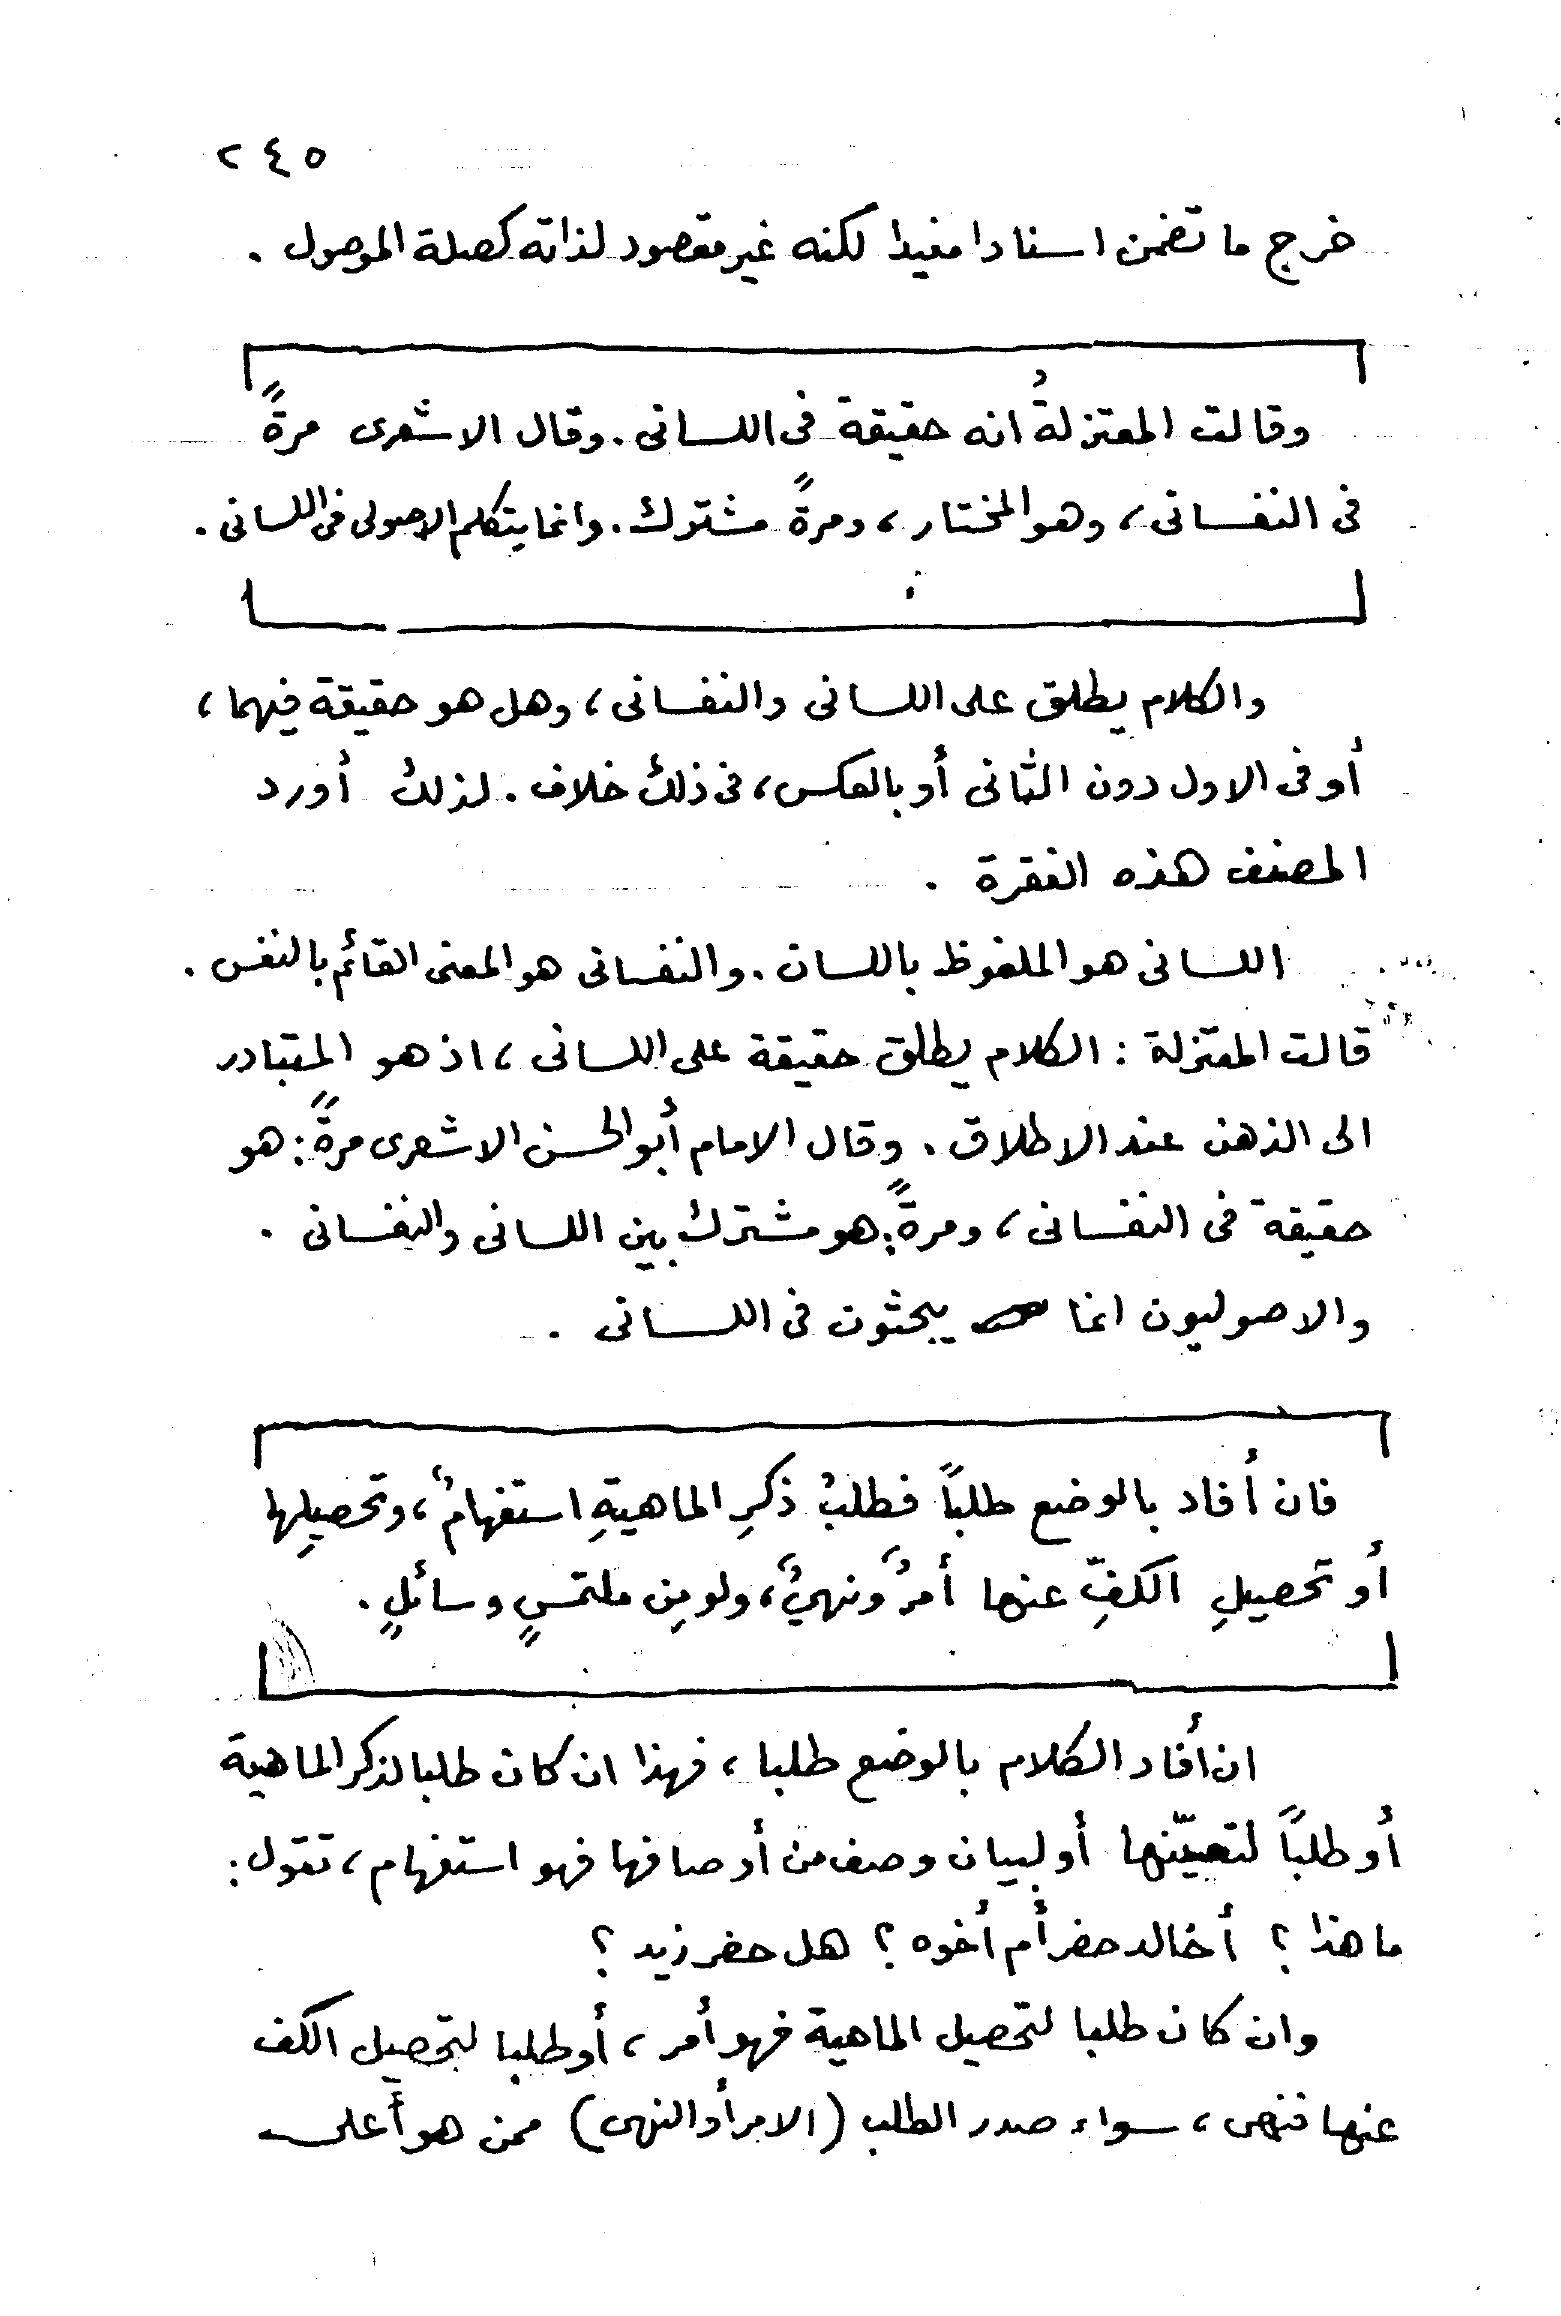 ٢٤٥
خرج ما تضمن اسنادا مفيدا لكنه غير مقصود لذاته كصلة الموصول .
وقالت المعتزلةُ انه حقيقة فى اللسانى . وقال الاشعرى مرةً
فى النفسانى ، وهو المختار ، ومرةً مشترك . وانما يتكلم الاصولى فى اللسانى .
والكلام يطلق على اللسانى والنفسانى ، وهل هو حقيقة فيهما ،
أو فى الاول دون الثانى أو بالعكس ، فى ذلك خلاف . لذلك أورد
المصنف هذه الفقرة .
اللسانى هو الملفوظ باللسان . والنفسانى هو المعنى القائم بالنفس .
قالت المعتزلة : الكلام يطلق حقيقة على اللسانى ، اذ هو المتبادر
الى الذهن عند الاطلاق . وقال الامام أبو الحسن الاشعرى مرةً : هو
حقيقة فى النفسانى ، ومرةً : هو مشترك بين اللسانى والنفسانى .
والاصوليون انما يبحثون فى اللسانى .
فان أفاد بالوضع طلباً فطلبُ ذكرِ الماهيةِ استفهامٌ ، وتحصيلِها
أو تحصيلِ الكفِّ عنها أمرٌ ونهيٌ ، ولو مِن ملتمسٍ وسائلٍ .
ان أفاد الكلام بالوضع طلبا ، فهذا ان كان طلبا لذكر الماهية
أو طلباً لتعيّنها أو لبيان وصف من أوصافها فهو استفهام ، تقول :
ما هذا ؟ أخالد حضر أم أخوه ؟ هل حضر زيد ؟
وان كان طلبا لتحصيل الماهية فهو أمر ، أو طلبا لتحصيل الكف
عنها فنهى ، سواء صدر الطلب (الامر أو النهى) ممن هو أعلى